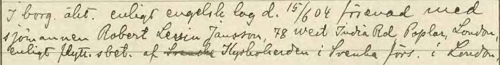 I borg. äkt. enligt engelsk lag d. 15/6 04 förenad med
sjömannen Robert Leview Jansson, 78 West India Rd Poplar, London,
enligt flyttn.sbet. af Svenska Kyrkoherden i Svenska förs. i London.